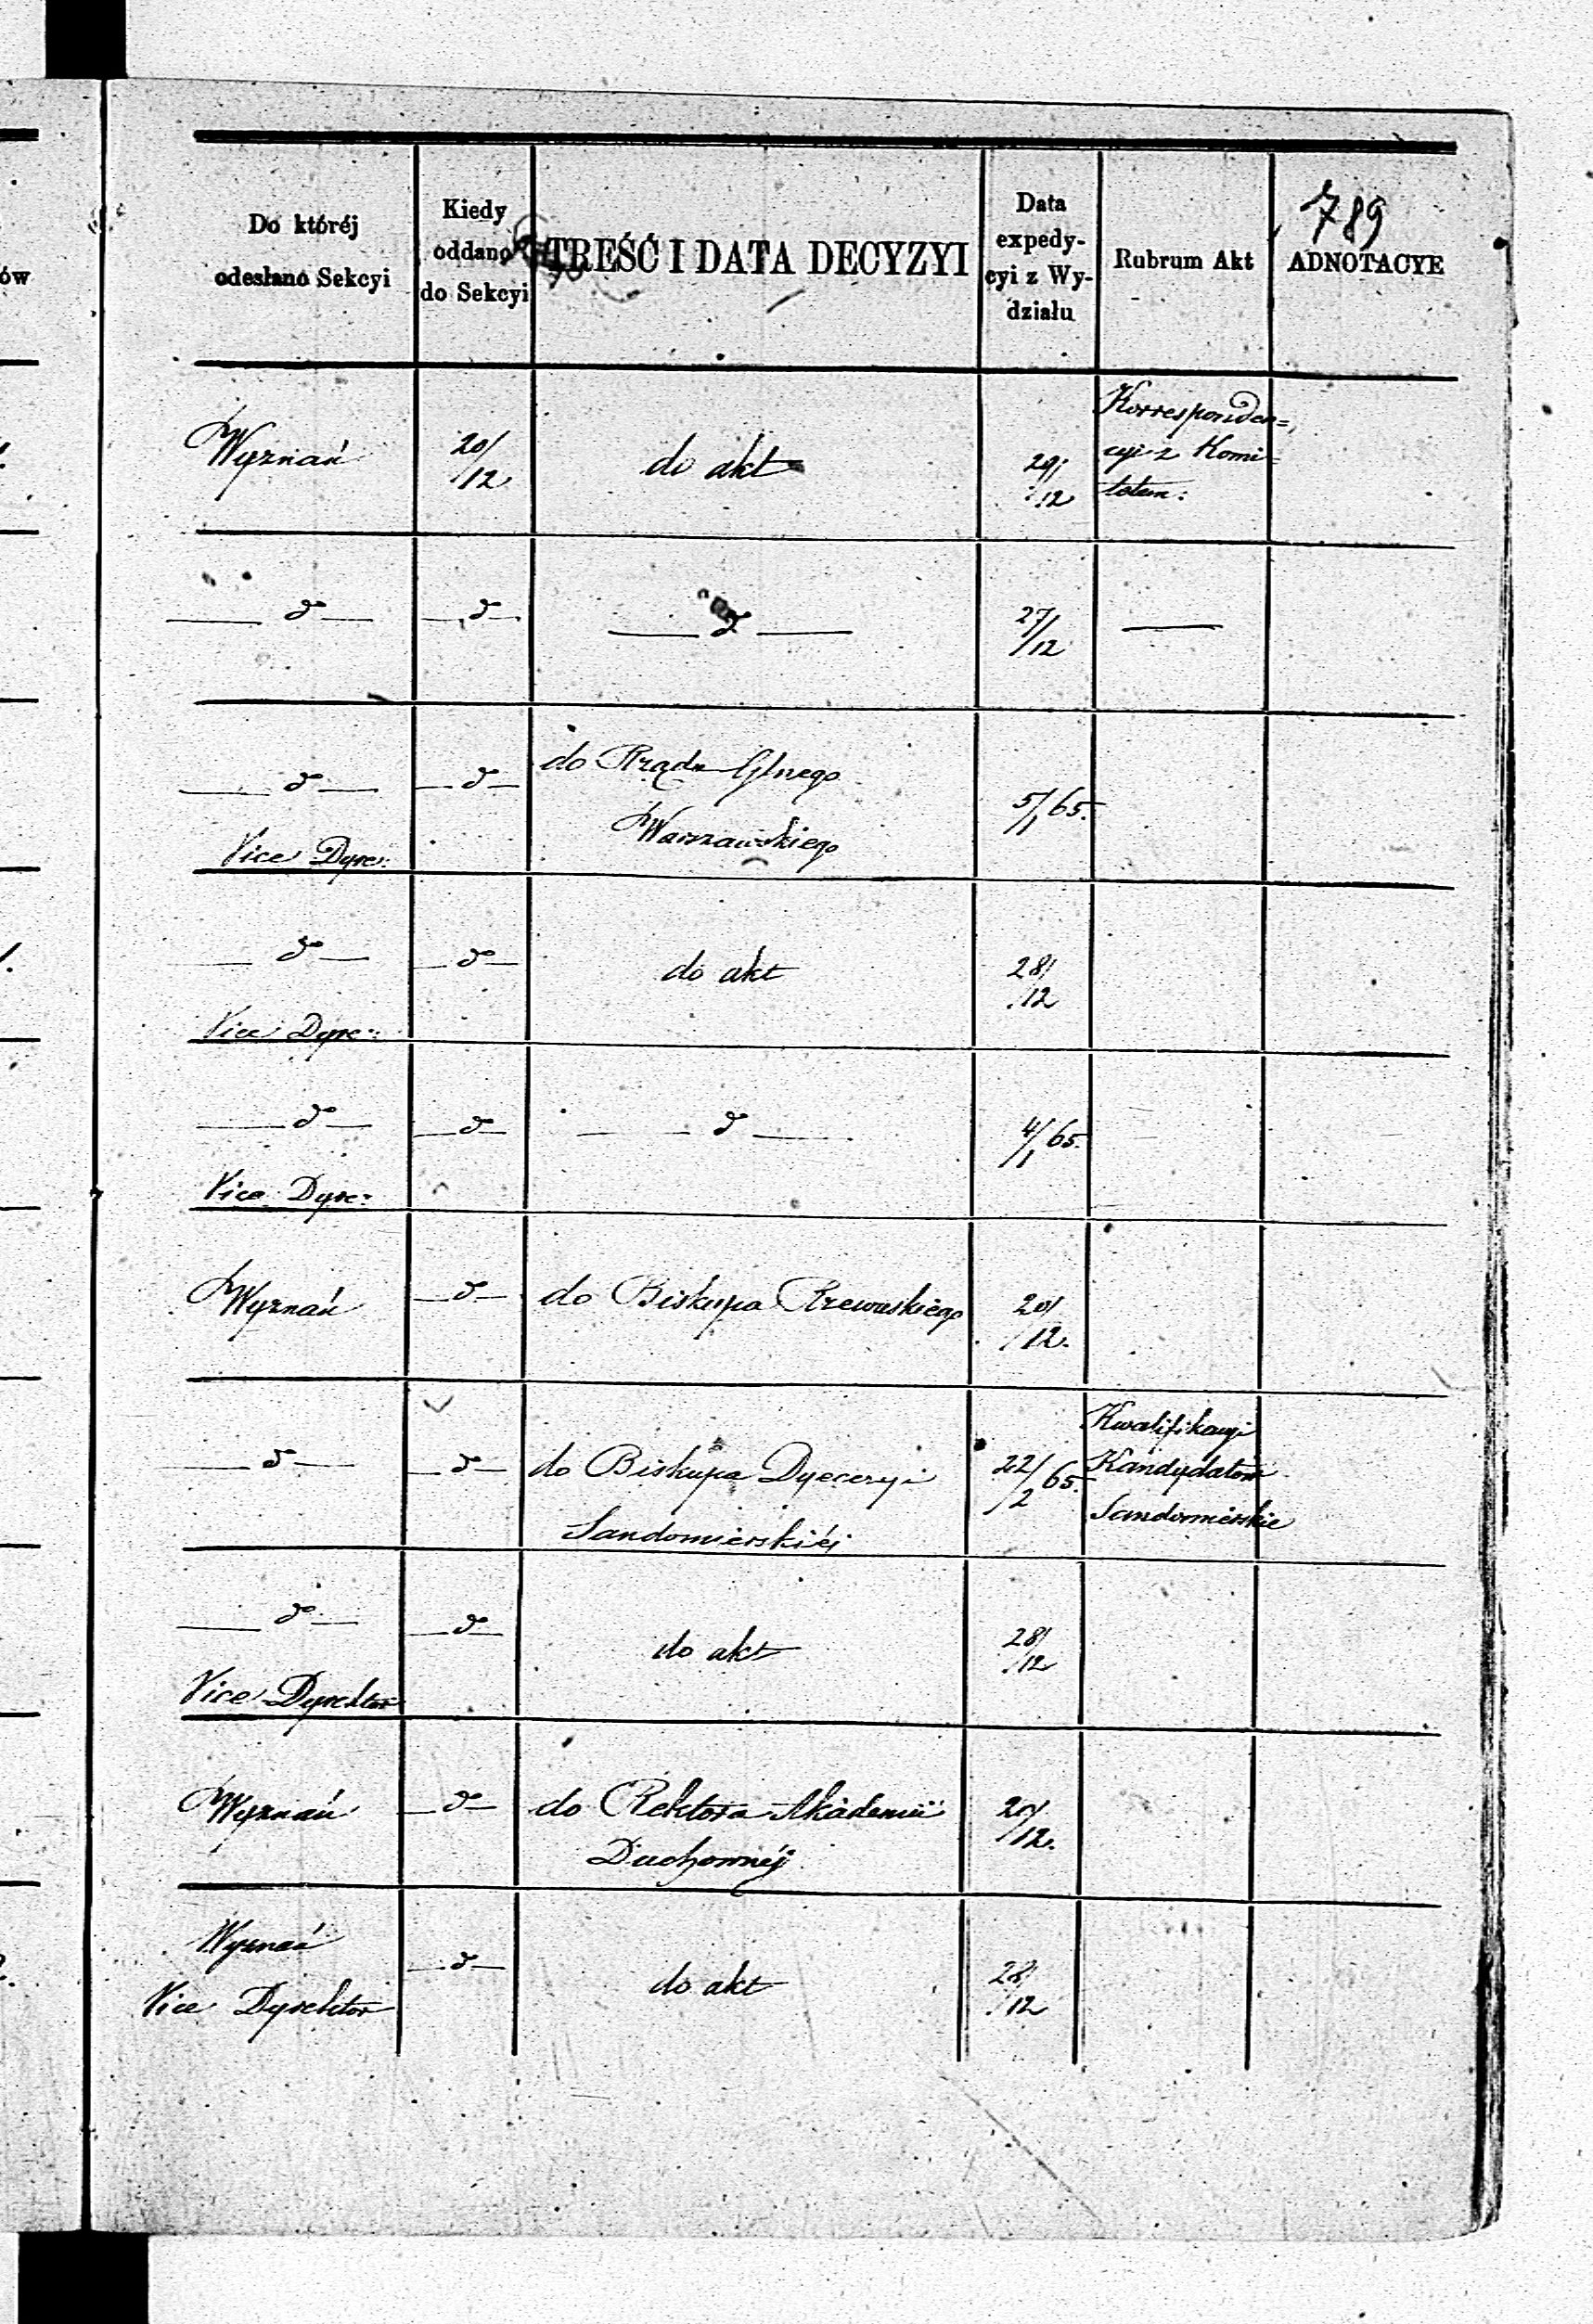 789
Do któréj
odesłano Sekcyi
Kiedy
oddano
do Sekcyi
TREŚĆ I DATA DECYZYI
Data
expedy-
cyi z Wy-
działu
Rubrum Akt
ADNOTACYE
Wyznań 20/12 do akt 29/12 Korresponden=
cyi z Komi=
tetem:
— d — — d — — d — 27/12 —
— d — — d — do Rządu Glnego 5/1 65.
Warszawskiego
Vice Dyre:
— d — — d — do akt 28/12
Vice Dyre:
— d — — d — — d — 4/1 65.
Vice Dyre:
Wyznań — d — do Biskupa Rzewuskiego 20/12.
— d — — d — do Biskupa Dyecezyi 22/2 65. Kwalifikacyi
Kandydatów
Sandomierskiéj Sandomierskie
— d — — d — do akt 28/12
Vice Dyrektor
Wyznań — d — do Rektora Akademii 20/12.
Duchownéj
Wyznań — d — do akt 28/12
Vice Dyrektor